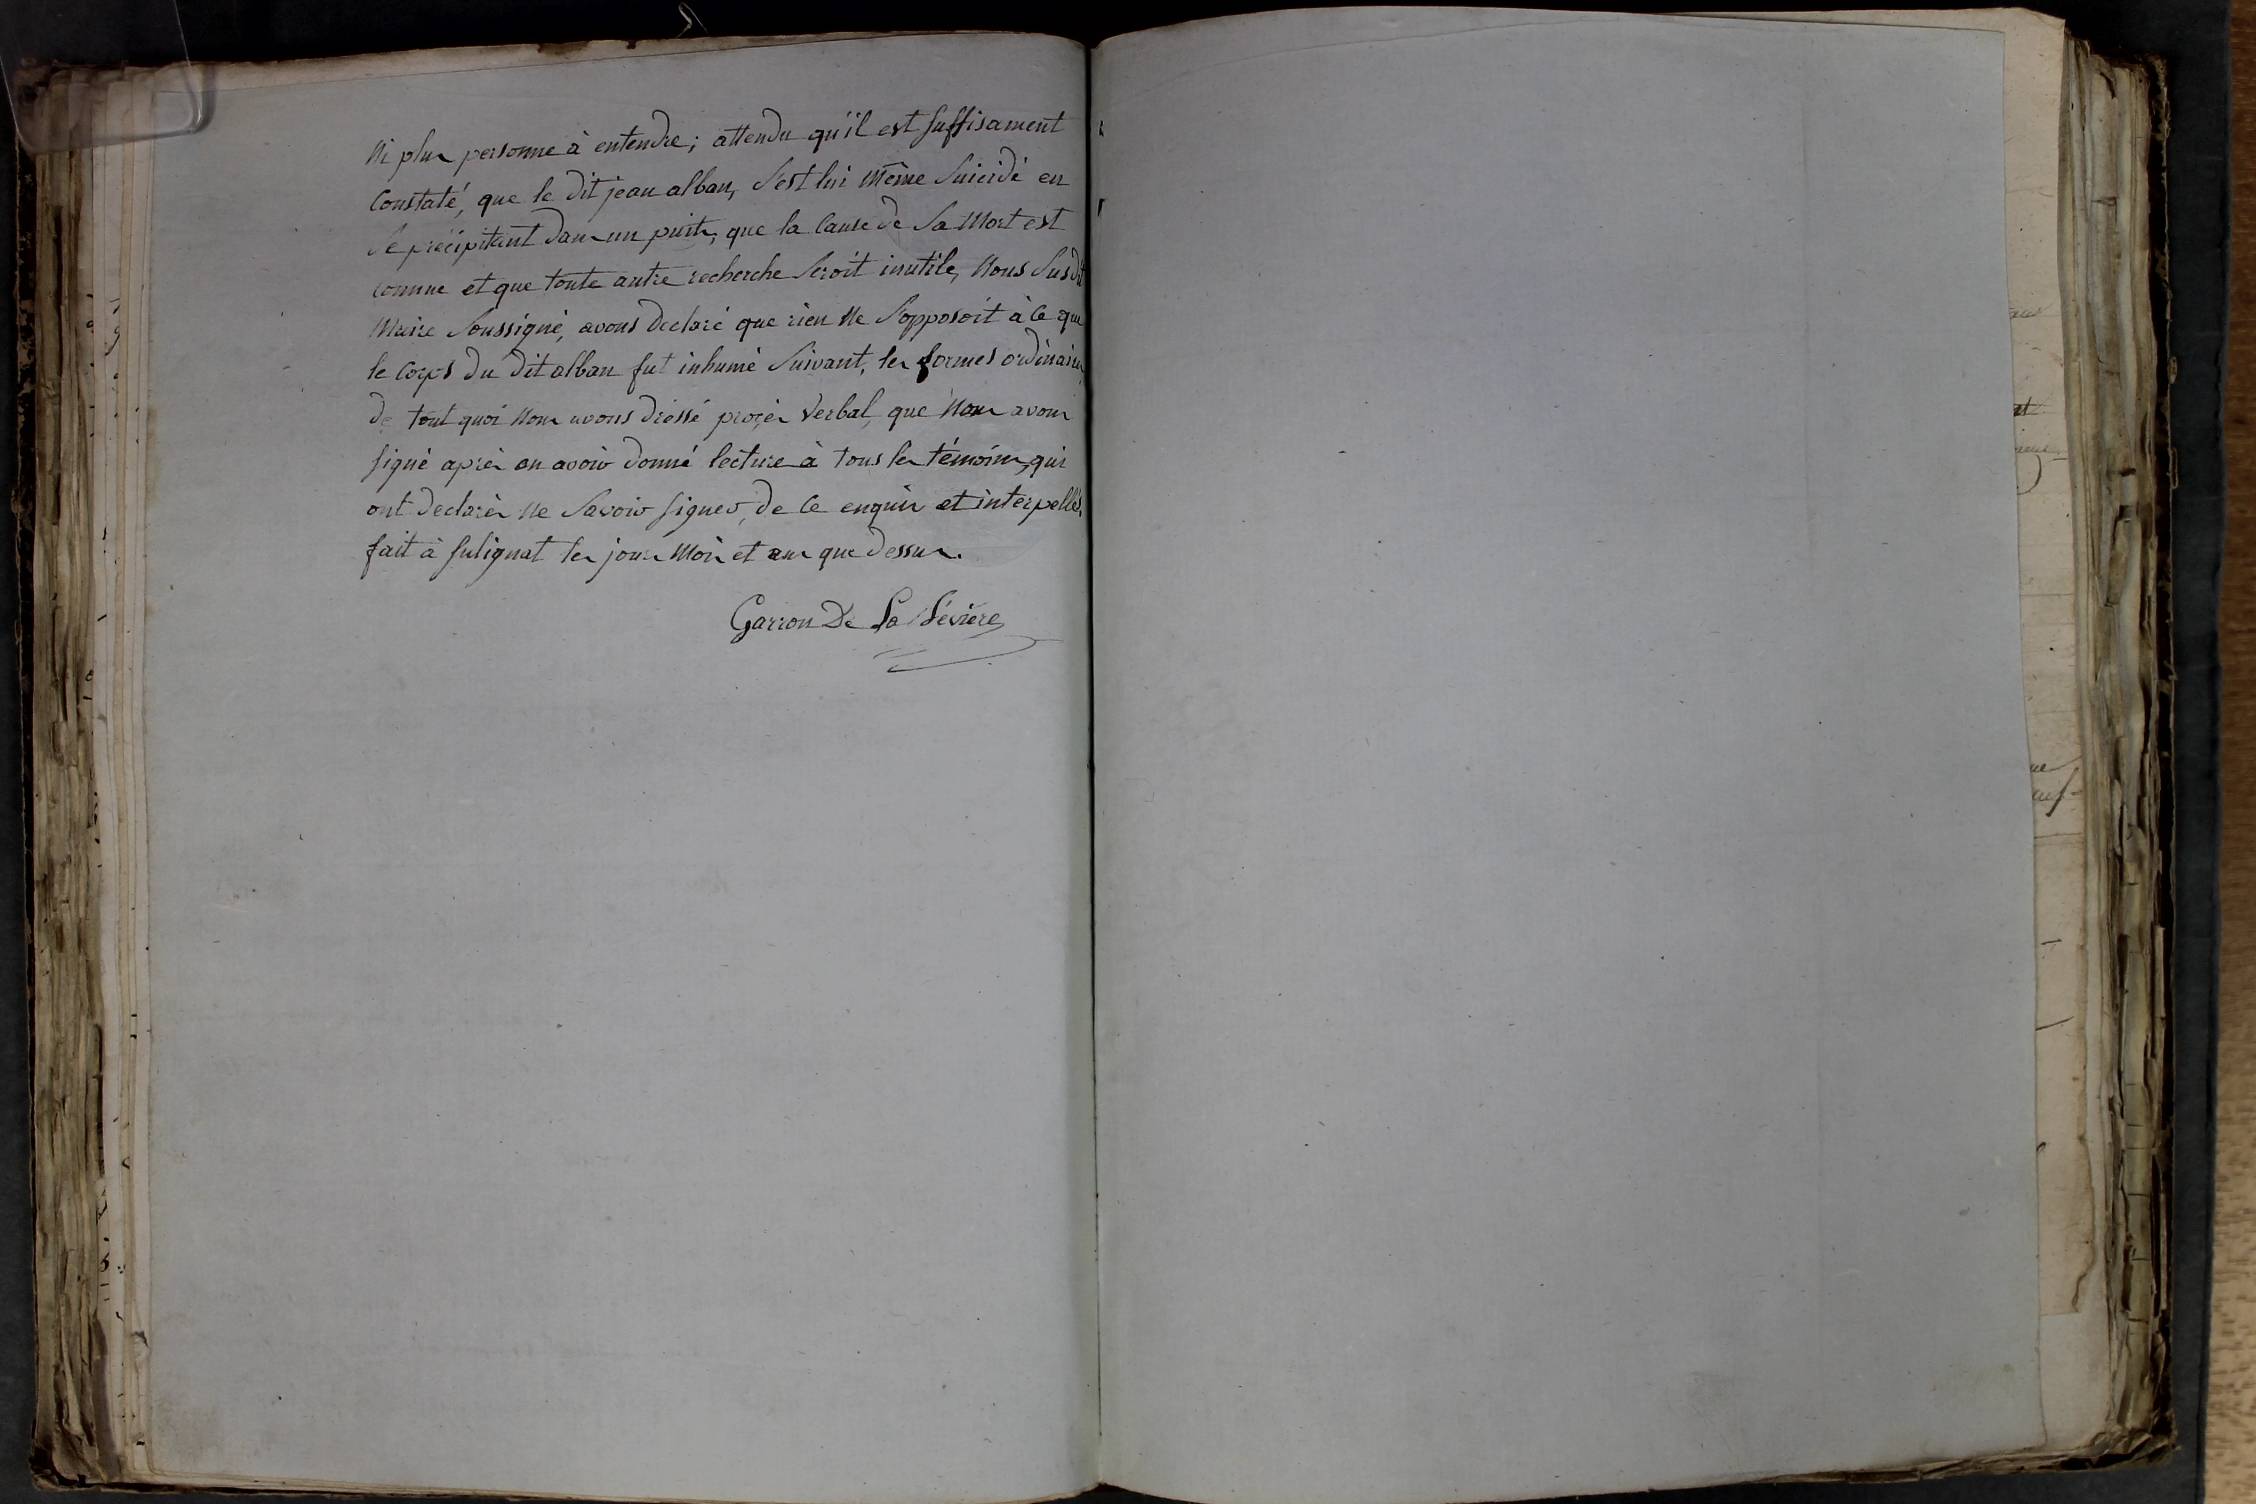 ni plus personne à entendre; attendu qu'il est suffisament
constaté, que le dit jean alban, s'est lui même suicidé en
se précipitant dans un puits, que la cause de sa mort est
connue et que toute autre recherche seroit inutile, nous susdit
maire soussigné, avons declaré que rien ne s'opposoit à ce que
le corps du dit alban fut inhumé suivant, les formes ordinaires,
de tout quoi nous avons dréssé procès verbal, que nous avons
signé après en avoir donné lecture à tous les témoins, qui
ont declarés ne savoir signer, de ce enquis et interpellés,
fait à sulignat les jour mois et an que dessus.
Garron De La Bévière